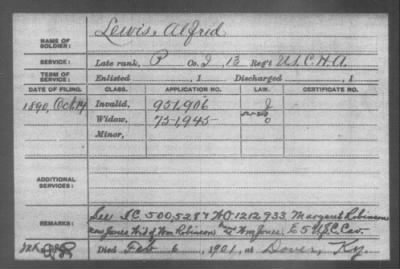 NAME OF SOLDIER: Lewis, Alfred
SERVICE: Late rank, P Co. I, 13 Reg't U.S.C.H.A.
TERM OF SERVICE: Enlisted , 1 Discharged , 1
DATE OF FILING. CLASS. APPLICATION NO. LAW. CERTIFICATE NO.
1890, Oct 14 Invalid, 951,906
Widow, 751,945
Minor,
ADDITIONAL SERVICES:
REMARKS: See I.C. 500,528 & W.O. 1212,733. Margaret Robinson
now Jones Wid of Wm Robinson Wm Jones, E 5 U.S.C. Cav.
Died Feb 6, 1901, at Dover, Ky.